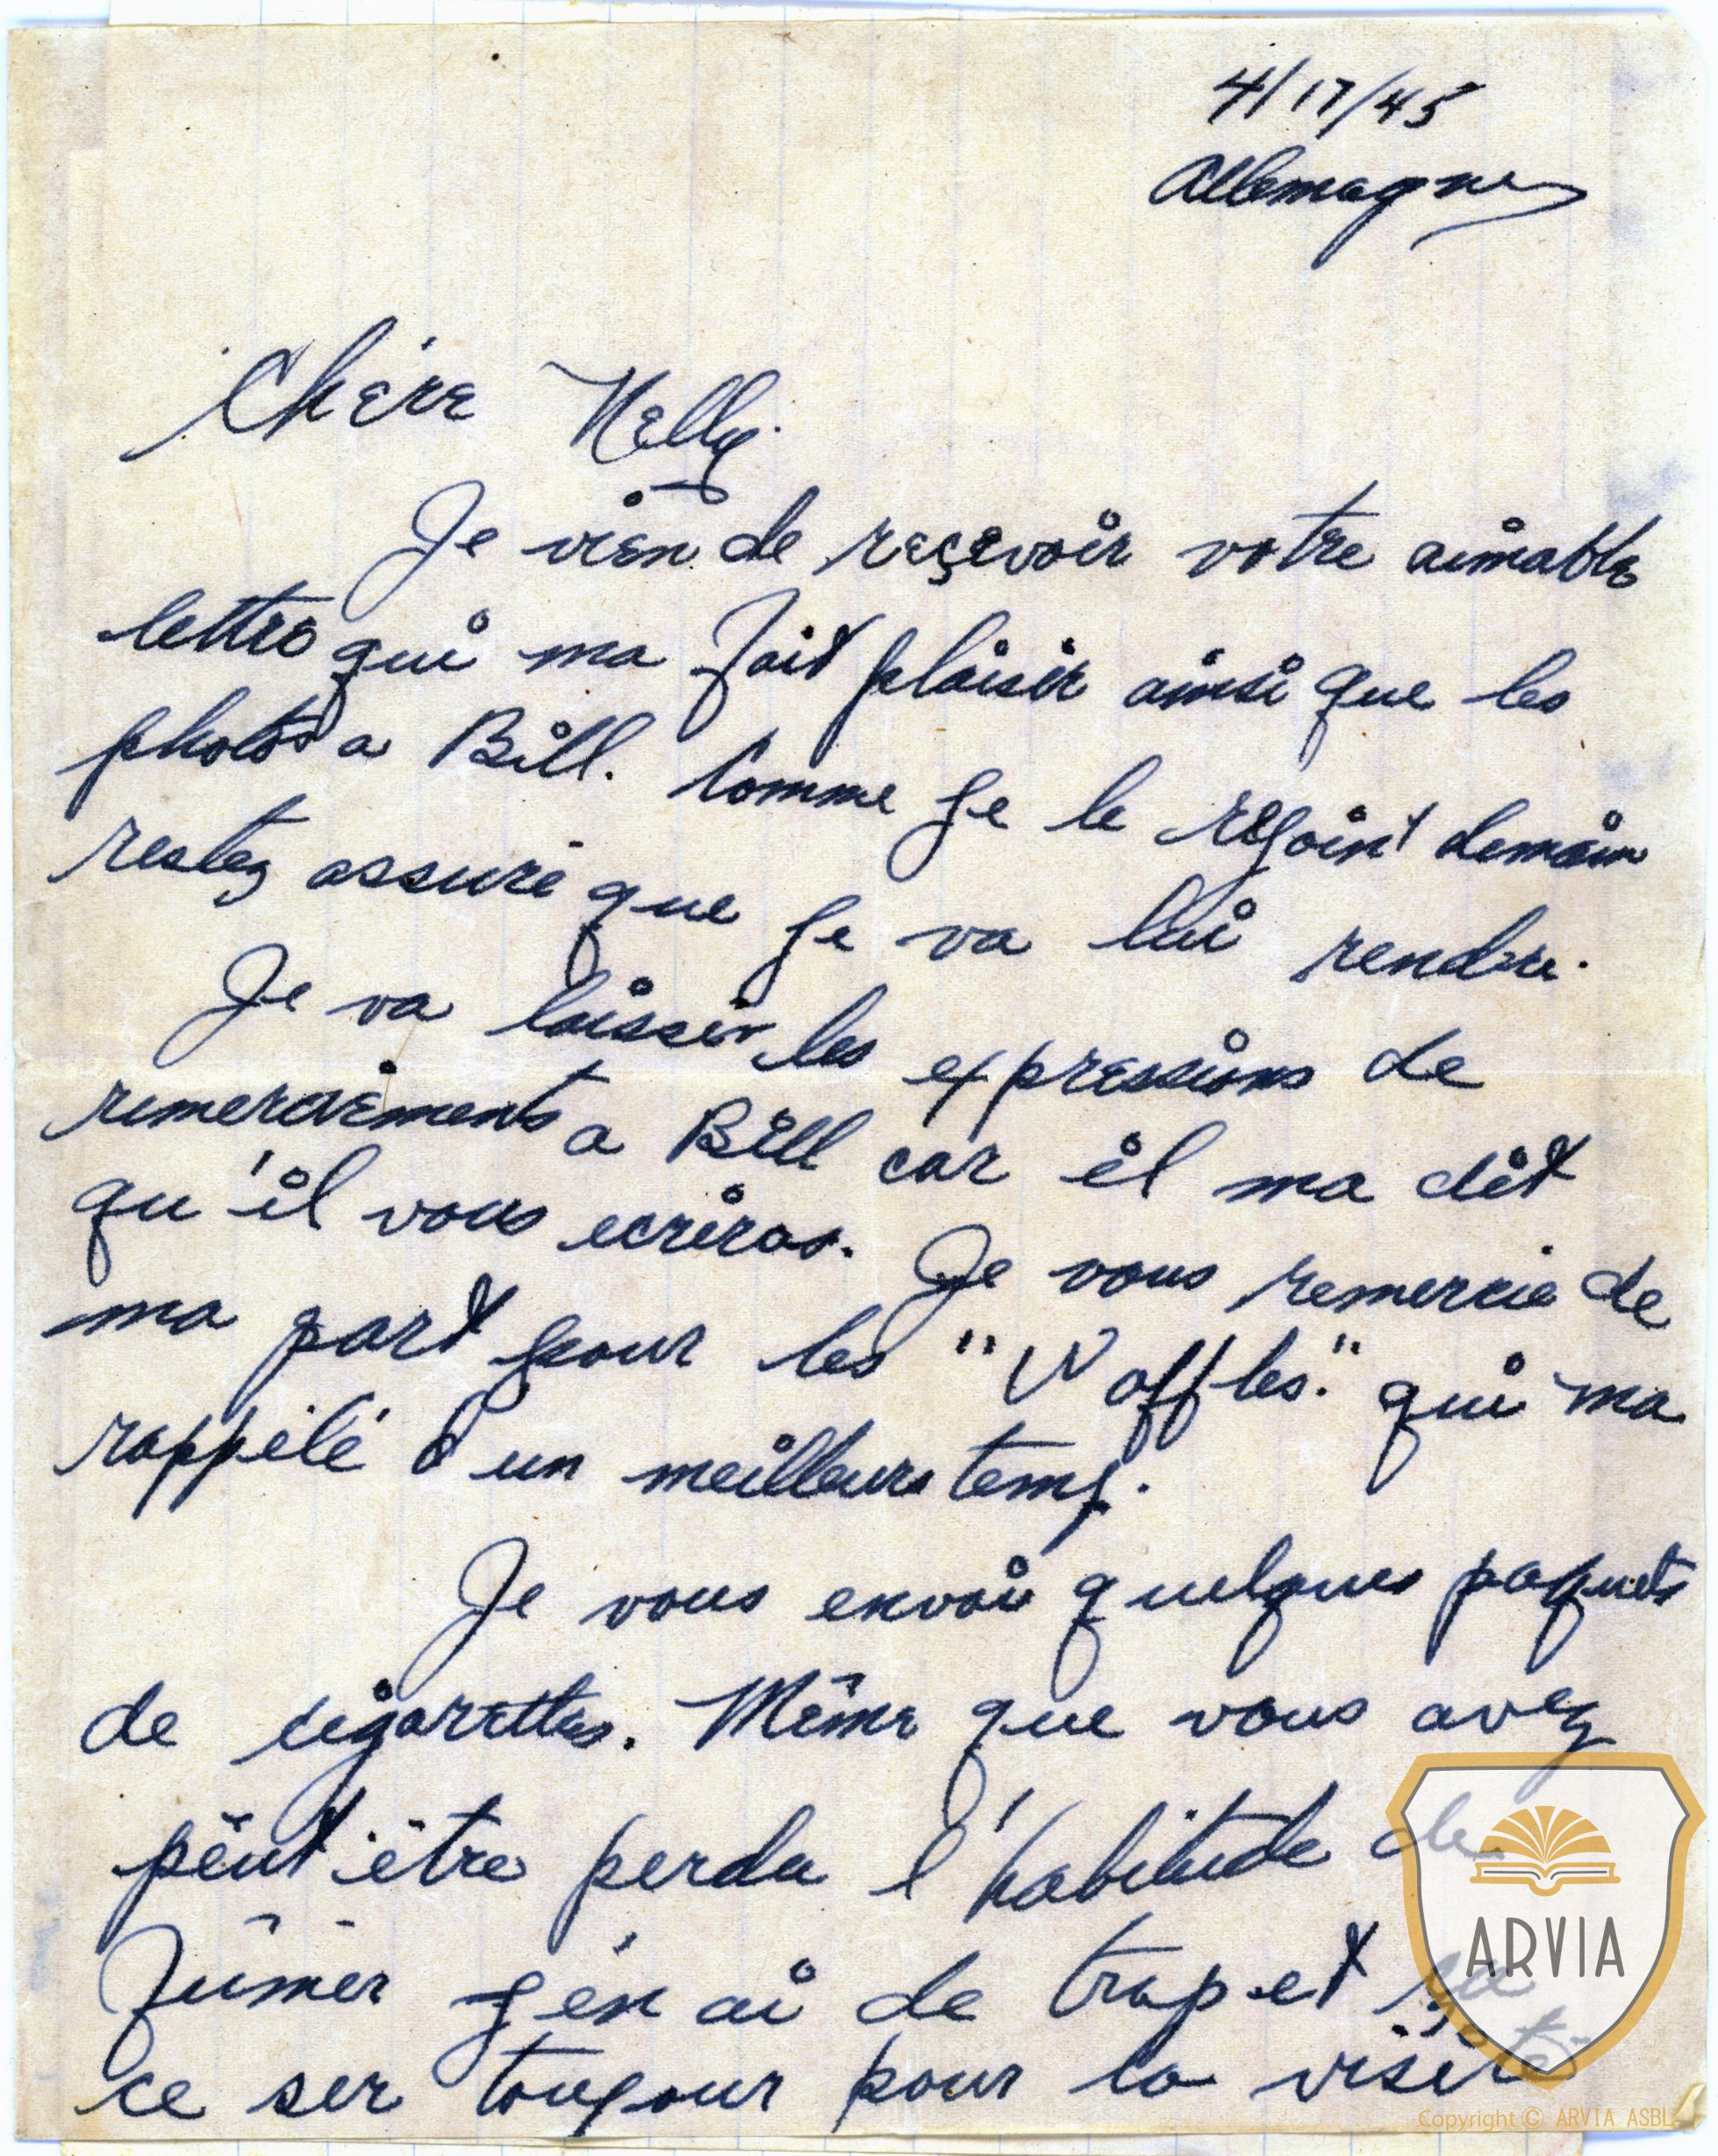 4/17/45
Allemagne
Chère Nelly.
Je vien de reçevoir votre aimable
lettre qui ma fait plaisir ainsi que les
photos a Bill. Comme je le rejoint demain
restez assuré que je va lui rendre.
Je va laisser les expressions de
remerciements a Bill car il ma dit
qu'il vous ecriras. Je vous remercie de
ma part pour les "Waffles." qui ma
rappélé d'un meilleurs temp.
Je vous envoi quelques paquets
de cigarettes. Même que vous avez
pêut être perdu l'habitude de
fûmer j'én ai de trop et ça
ce ser toujour pour la visite
ARVIA
Copyright © ARVIA ASBL